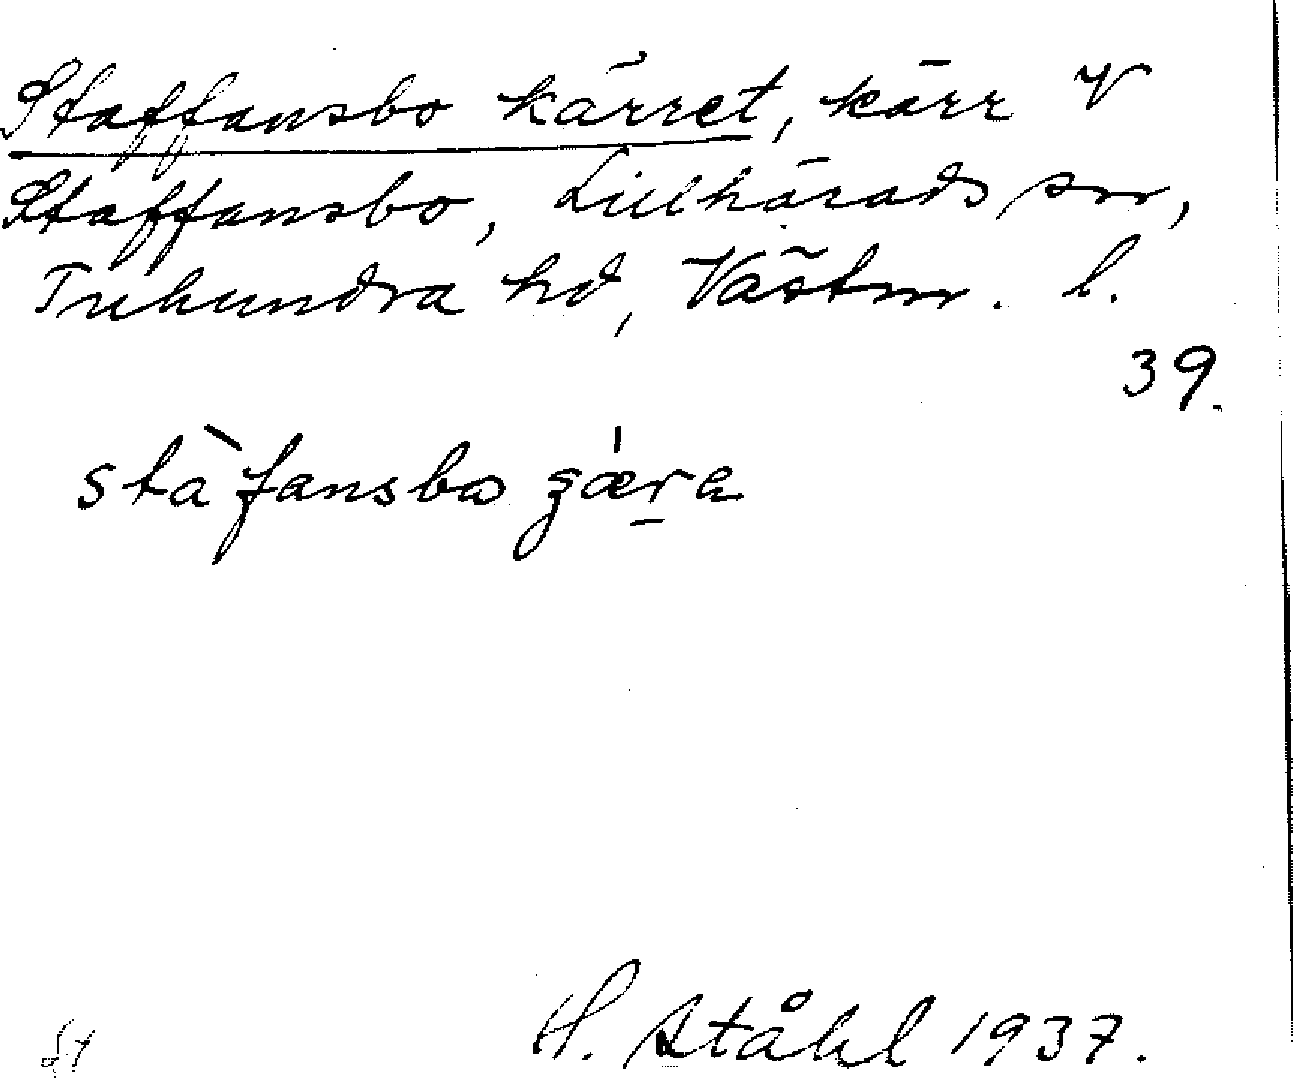 Staffansbo kärret, kärr V
Staffansbo, Lillhärads sn,
Tuhundra hd, Västm. l.
39.
stàfansbo
H. Ståhl 1937.
St